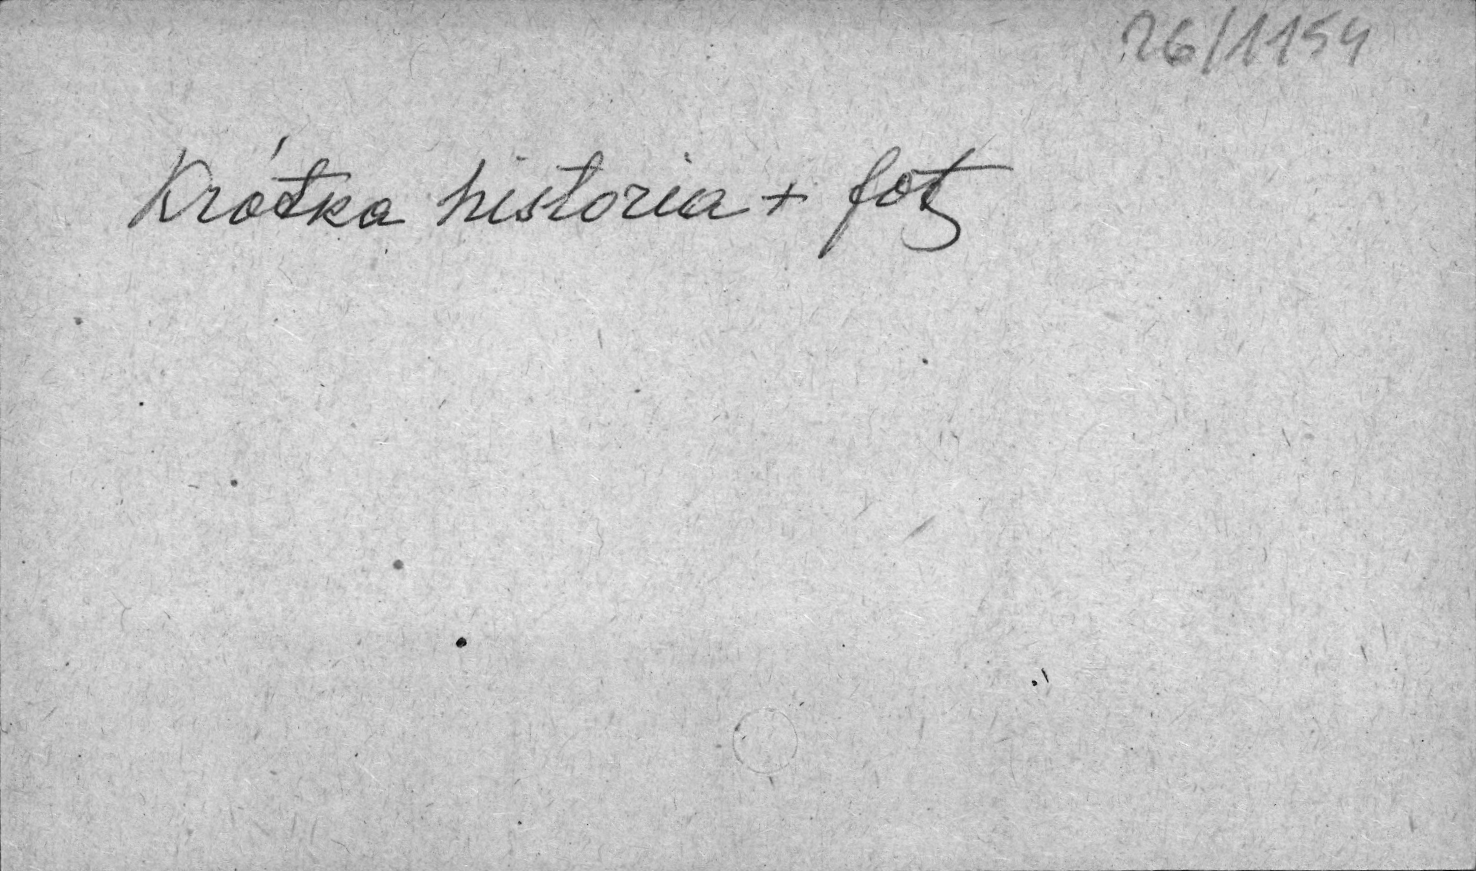 26/1154
Krótka historia + fot